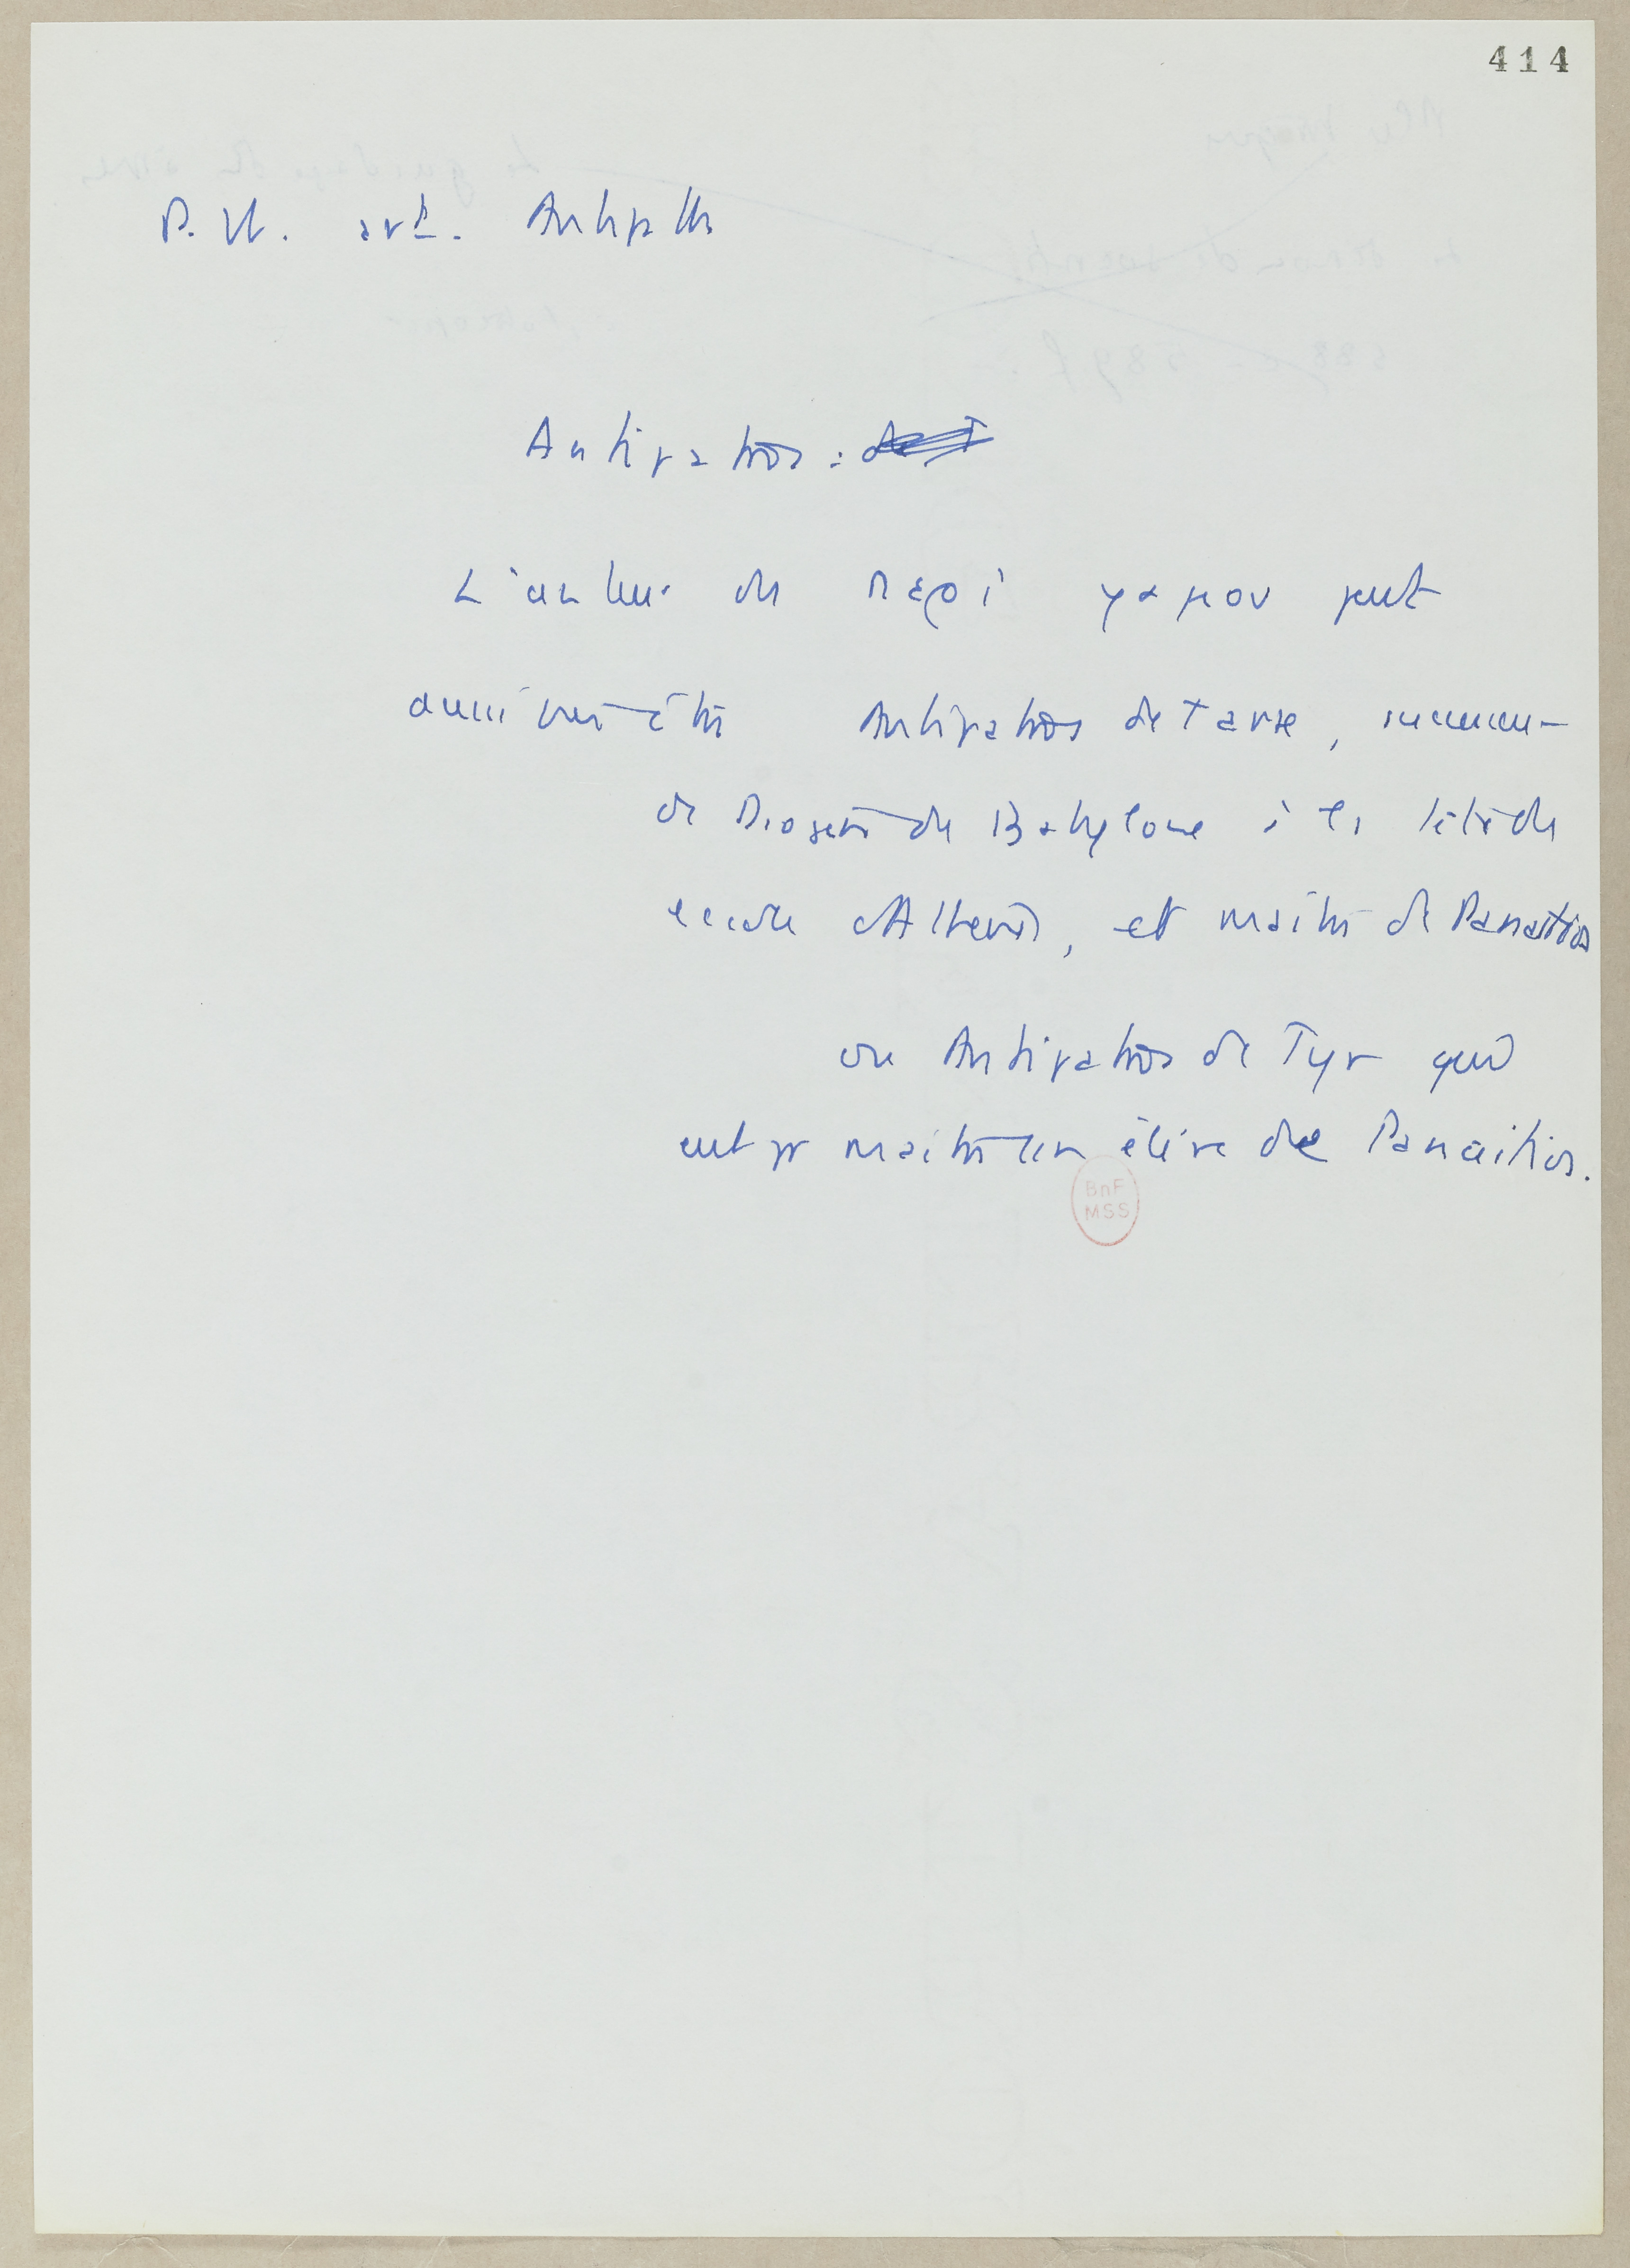 414
P. W. art. Antipater
Antipatros :
L'auteur du περι γαμου peut
aussi bien être Antipatros de Tarse, successeur
de Diogène de Babylone à la tête de
école d'Athènes, et maître de Panaitios
ou Antipatros de Tyr qui
eut pr maître un élève de Panaitios.
BnF
MSS